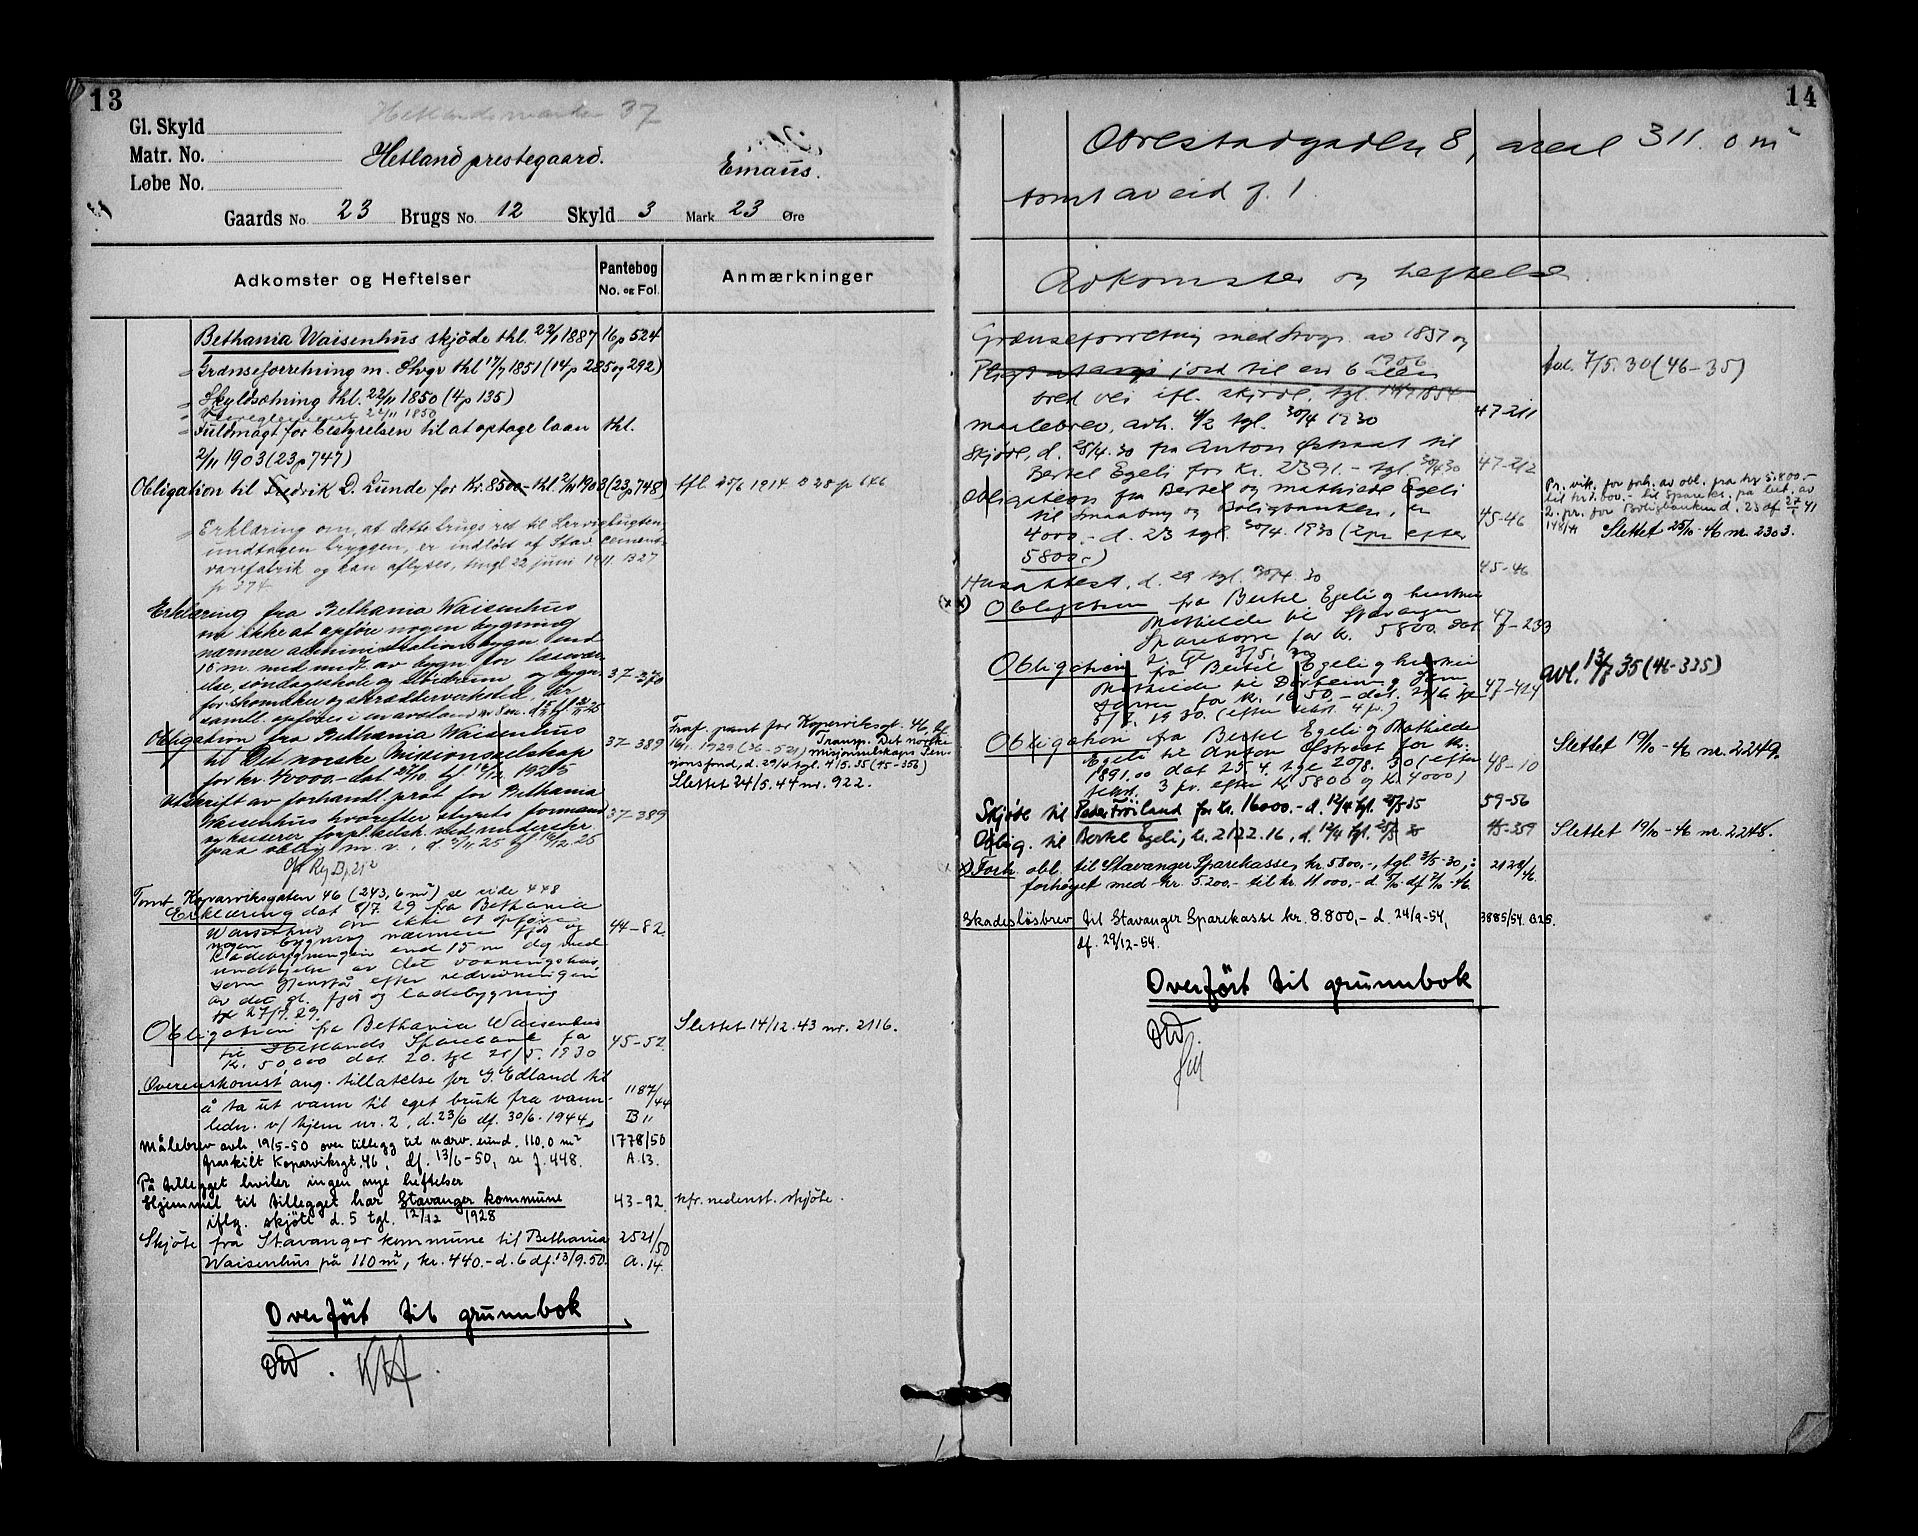 13
Hetlandsmarken 37
Gl. Skyld
Matr. No.
Løbe No.
Hetland prestegaard.
Emaus.
Gaards No. 23 Brugs No. 12 Skyld 3 Mark 23 Øre
Adkomster og Heftelser
Pantebog
No. og Fol.
Anmærkninger
Bethania Waisenhus skjøde thl. 22/11 1887 16p 524
Grænseforretning m. Slvgr thl 17/7 1851 (14p 285 og 292)
Skyldsætning thl. 22/11 1850 (4p 135)
22/11 1850
Fuldmagt for bestyrelsen til at optage laan thl.
2/11 1903 (23p 747)
Obligation til Fredrik D. Lunde for Kr. 8500 - thl. 2/11 1903 (23p 748) afl. 25/6 1914 28 p 646
Erklæring om, at dette brugs ret til Lervigbugten,
undtagen bryggen, er indløst af Stav. Cement-
varefabrik og kan aflyses, tingl 22 juni 1911. B27
p 374
Erklæring fra Bethania Waisenhus
om ikke at opføre nogen bygning
nærmere administrationsbygn end
15 m. med undt. av bygn for læsevær-
else, søndagsskole og ... og bygn.
for skomaker og skrædderverksted, der
samtl. opføres i en avstand av 8 m. 37-370
Obligation fra Bethania Waisenhus 37-389
til Det norske Missionsselskap
for kr. 40000.- dat 27/10 tgl 16/12 1925
Traf. pant for Koperviksgt. 46,
16/1. 1929 (36-521) Transp. Det norske
misjonsselskaps Pen-
sjonsfond, d. 29/4 tgl. 4/5. 35 (45-356)
Slettet 24/5. 44 nr. 922.
Utskrift av forhandl. prot for Bethania
Waisenhus hvorefter styrets formand 37-389
og kasserer forpl. selsk. ved underskr.
paa oblig m. v., d 2/11 25 tgl 16/12 25
Tomt Kopervikgaten 46 (243,6 m²) se side 448
Erklæring dat 8/7. 29 fra Bethania
Waisenhus om ikke at opføre 44-82.
nogen bygning nærmere fjøs og
ladebygningen end 15 m dog med
undtagelse av det vaaningshus,
som gjenstår efter nedrivningen
av det gl. fjøs og ladebygning
tgl 27/7. 29.
Obligation fra Bethania Waisenhus
til Hetlands Sparebank fra 45-52
Kr. 50,000 dat 20. tgl 21/5. 1930
Slettet 14/12. 43 nr. 2116.
Overenskomst ang. tillatelse for G. Edland til
å ta ut vann til eget bruk fra vann- 1187/44
ledn. v/ hjem nr. 2, d. 23/6 df. 30/6. 1944, B 11
Målebrev avh. 19/5-50 over tillegg til nærv. eiend. 110.0 m² 1778/50
fraskilt Koperviksgt. 46, df. 13/6-50, se f. 448. A.13.
På tillegget hviler ingen nye heftelser
Hjemmel til tillegget har Stavanger kommune 43-92. kfr. nedenst. skjøte.
iflg. skjøte d. 5 tgl. 12/12 1928
Skjøte fra Stavanger kommune til Bethania 2521/50
Waisenhus på 110 m², kr. 440.- d. 6 df. 13/9. 50. A. 14.
Overført til grunnbok
14
Obrestadgaden 8, areal 311.0 m²
tomt av eid f. 1.
Adkomster og heftelse
Grænseforretning med Stvgr. av 1851 og 1906
Pligt at avgi jord til en 6 alen
bred vei ifl. skjøde, tgl. 14/7 1854
Avl. 7/5. 30 (46-35)
maalebrev, avh. 4/2 tgl. 30/4 1930 47-211
Skjøte, d. 25/4. 30 fra Anton Østraat til
Bertel Egeli for Kr. 2391.- tgl 30/4 30 47-212
Obligation fra Bertel og Mathilde Egeli
til Smaabruk og Boligbanken, er 45-46
4000.- d. 2/3 tgl. 30/4. 1930 (2 pr. efter
5800.-)
Pr. vik. for forh. av obl. fra kr 5.800.-
til kr. ... til Sparekr. på bet. av
2. pr. for Boligbanken d. 23 df 27/1 41
148/41 Slettet 25/10-46 nr. 2303.
Husattest, d. 29 tgl 30/4. 30 45-46
(xx) Obligation fra Bertel Egeli og hustru
Mathilde til Stavanger
Sparekasse for kr. 5800. dat 47-233
2. tgl 3/5. 30
Obligation fra Bertel Egeli og hustru
Mathilde til
for kr. 1650.- dat. 21/6 tgl 47-424
5/7. 1930. (efter 4 pr.)
avl. 13/7 35 (46-335)
Obligation fra Bertel Egeli og Mathilde
Egeli til Anton Østraat for kr.
1891.00 dat 25/4. tgl 20/8. 30 (efter 48-10
3 pr. efter Kr 5800 og Kr. 4000)
Slettet 19/10-46 nr. 2249.
Skjøte til Peder Frøiland for kr. 16000.- d. 12/4 tgl. 27/5 35 59-56
Oblig. til Bertel Egeli, kr. 2122.16, d. 12/4 tgl. 27/5 35 45-359 Slettet 19/10-46 nr. 2248.
x) Forh. obl. til Stavanger Sparekasse, kr. 5800.-, tgl. 3/5-30, 2124/46.
forhøyet med kr. 5.200.- til kr. 11 000.- d 7/10 df 9/10-46.
Skadesløsbrev til Stavanger Sparekasse kr. 8.800,- d. 24/9-54, 3885/54. B.25.
df. 29/12-54.
Overført til grunnbok